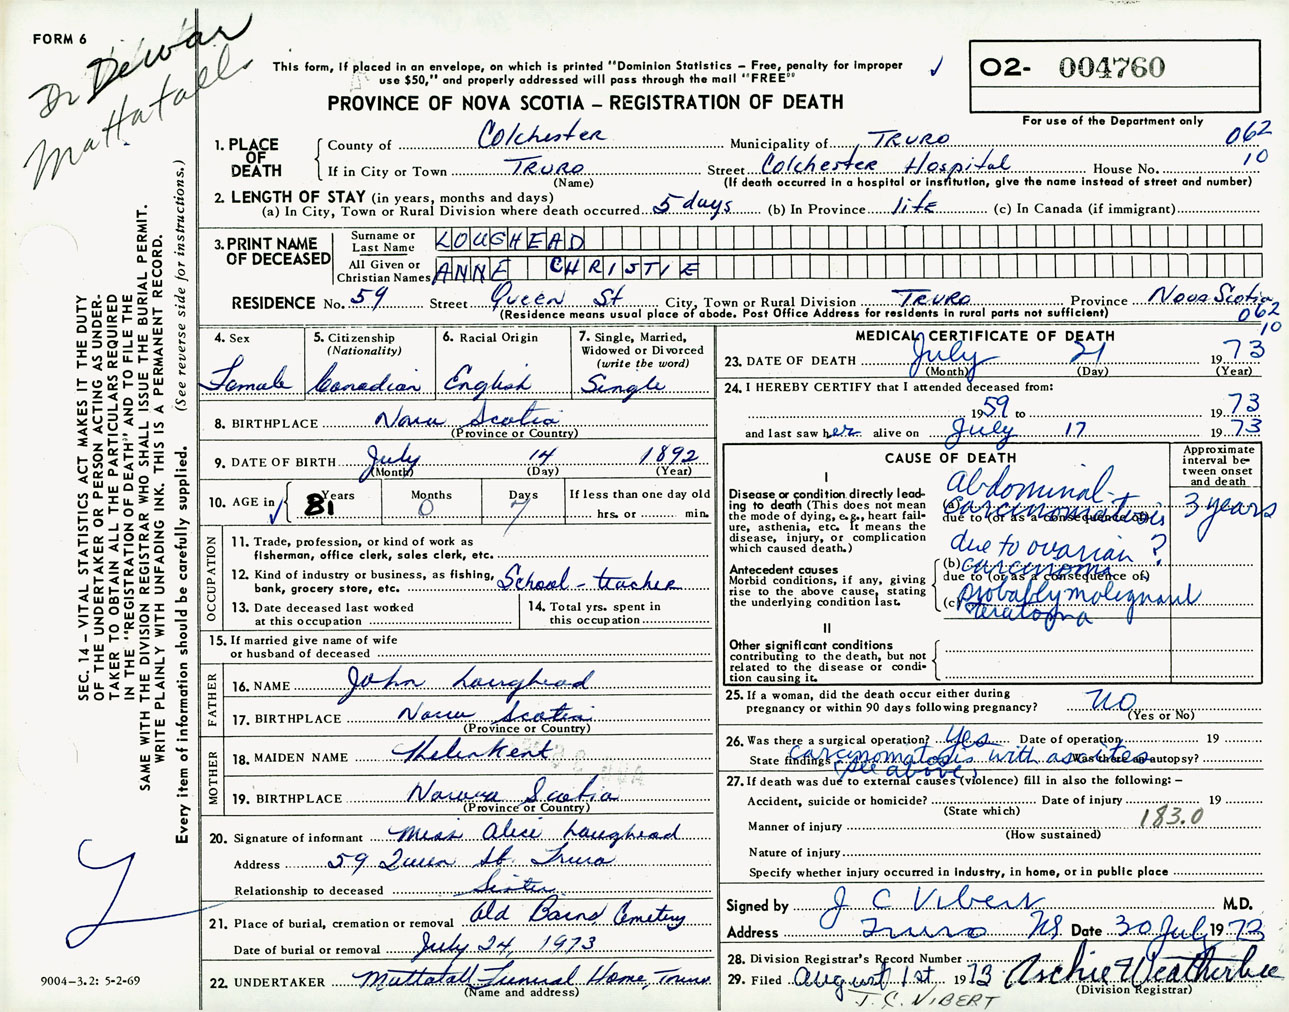 FORM 6
Dr Dewar
Mattatall
This form, if placed in an envelope, on which is printed "Dominion Statistics – Free, penalty for improper
use $50," and properly addressed will pass through the mail "FREE"
PROVINCE OF NOVA SCOTIA – REGISTRATION OF DEATH
02- 004760
For use of the Department only
062
10
SEC. 14 – VITAL STATISTICS ACT MAKES IT THE DUTY
OF THE UNDERTAKER OR PERSON ACTING AS UNDER-
TAKER TO OBTAIN ALL THE PARTICULARS REQUIRED
IN THE "REGISTRATION OF DEATH" AND TO FILE THE
SAME WITH THE DIVISION REGISTRAR WHO SHALL ISSUE THE BURIAL PERMIT.
WRITE PLAINLY WITH UNFADING INK. THIS IS A PERMANENT RECORD.
Every item of information should be carefully supplied. (See reverse side for instructions.)
1. PLACE OF DEATH
County of Colchester Municipality of TRURO
If in City or Town TRURO Street Colchester Hospital House No.
(Name) (If death occurred in a hospital or institution, give the name instead of street and number)
2. LENGTH OF STAY (in years, months and days)
(a) In City, Town or Rural Division where death occurred 5 days (b) In Province life (c) In Canada (if immigrant)
3. PRINT NAME OF DECEASED
Surname or Last Name LOUGHEAD
All Given or Christian Names ANNE CHRISTIE
RESIDENCE No. 59 Street Queen St City, Town or Rural Division TRURO Province Nova Scotia
(Residence means usual place of abode. Post Office Address for residents in rural parts not sufficient)
062
10
4. Sex Female
5. Citizenship (Nationality) Canadian
6. Racial Origin English
7. Single, Married, Widowed or Divorced (write the word) Single
8. BIRTHPLACE Nova Scotia
(Province or Country)
9. DATE OF BIRTH July 14 1892
(Month) (Day) (Year)
10. AGE in Years 81 Months 0 Days 7 If less than one day old hrs. or min.
OCCUPATION
11. Trade, profession, or kind of work as
fisherman, office clerk, sales clerk, etc.
12. Kind of industry or business, as fishing,
bank, grocery store, etc. School-teacher
13. Date deceased last worked
at this occupation
14. Total yrs. spent in
this occupation
15. If married give name of wife
or husband of deceased
FATHER
16. NAME John Loughead
17. BIRTHPLACE Nova Scotia
(Province or Country)
MOTHER
18. MAIDEN NAME Helen Kent
19. BIRTHPLACE Novova Scotia
(Province or Country)
20. Signature of informant Miss Alice Loughead
Address 59 Queen St. Truro
Relationship to deceased Sister
21. Place of burial, cremation or removal Old Barns Cemetery
Date of burial or removal July 24, 1973
22. UNDERTAKER Mattatall Funeral Home, Truro
(Name and address)
9004-3.2: 5-2-69
MEDICAL CERTIFICATE OF DEATH
23. DATE OF DEATH July 21 1973
(Month) (Day) (Year)
24. I HEREBY CERTIFY that I attended deceased from:
1959 to 1973
and last saw her alive on July 17 1973
CAUSE OF DEATH
Approximate interval between onset and death
I
Disease or condition directly lead-
ing to death (This does not mean
the mode of dying, e.g., heart fail-
ure, asthenia, etc. It means the
disease, injury, or complication
which caused death.)
Abdominal
(a) carcinomatosis 3 years
due to (or as a consequence of)
due to ovarian ?
Antecedent causes
Morbid conditions, if any, giving
rise to the above cause, stating
the underlying condition last.
(b) carcinoma
due to (or as a consequence of)
(c) probably malignant
teratoma
II
Other significant conditions
contributing to the death, but not
related to the disease or condi-
tion causing it.
25. If a woman, did the death occur either during
pregnancy or within 90 days following pregnancy? NO
(Yes or No)
26. Was there a surgical operation? Yes Date of operation 19
State findings carcinomatosis with ascites Was there an autopsy?
(see above)
27. If death was due to external causes (violence) fill in also the following: –
Accident, suicide or homicide? Date of injury 19
(State which)
183.0
Manner of injury
(How sustained)
Nature of injury
Specify whether injury occurred in industry, in home, or in public place
Signed by J C Vibert M.D.
Address Truro NS Date 30 July 1973
28. Division Registrar's Record Number
29. Filed August 1st 1973 Archie Weatherbee
(Division Registrar)
J. C. VIBERT